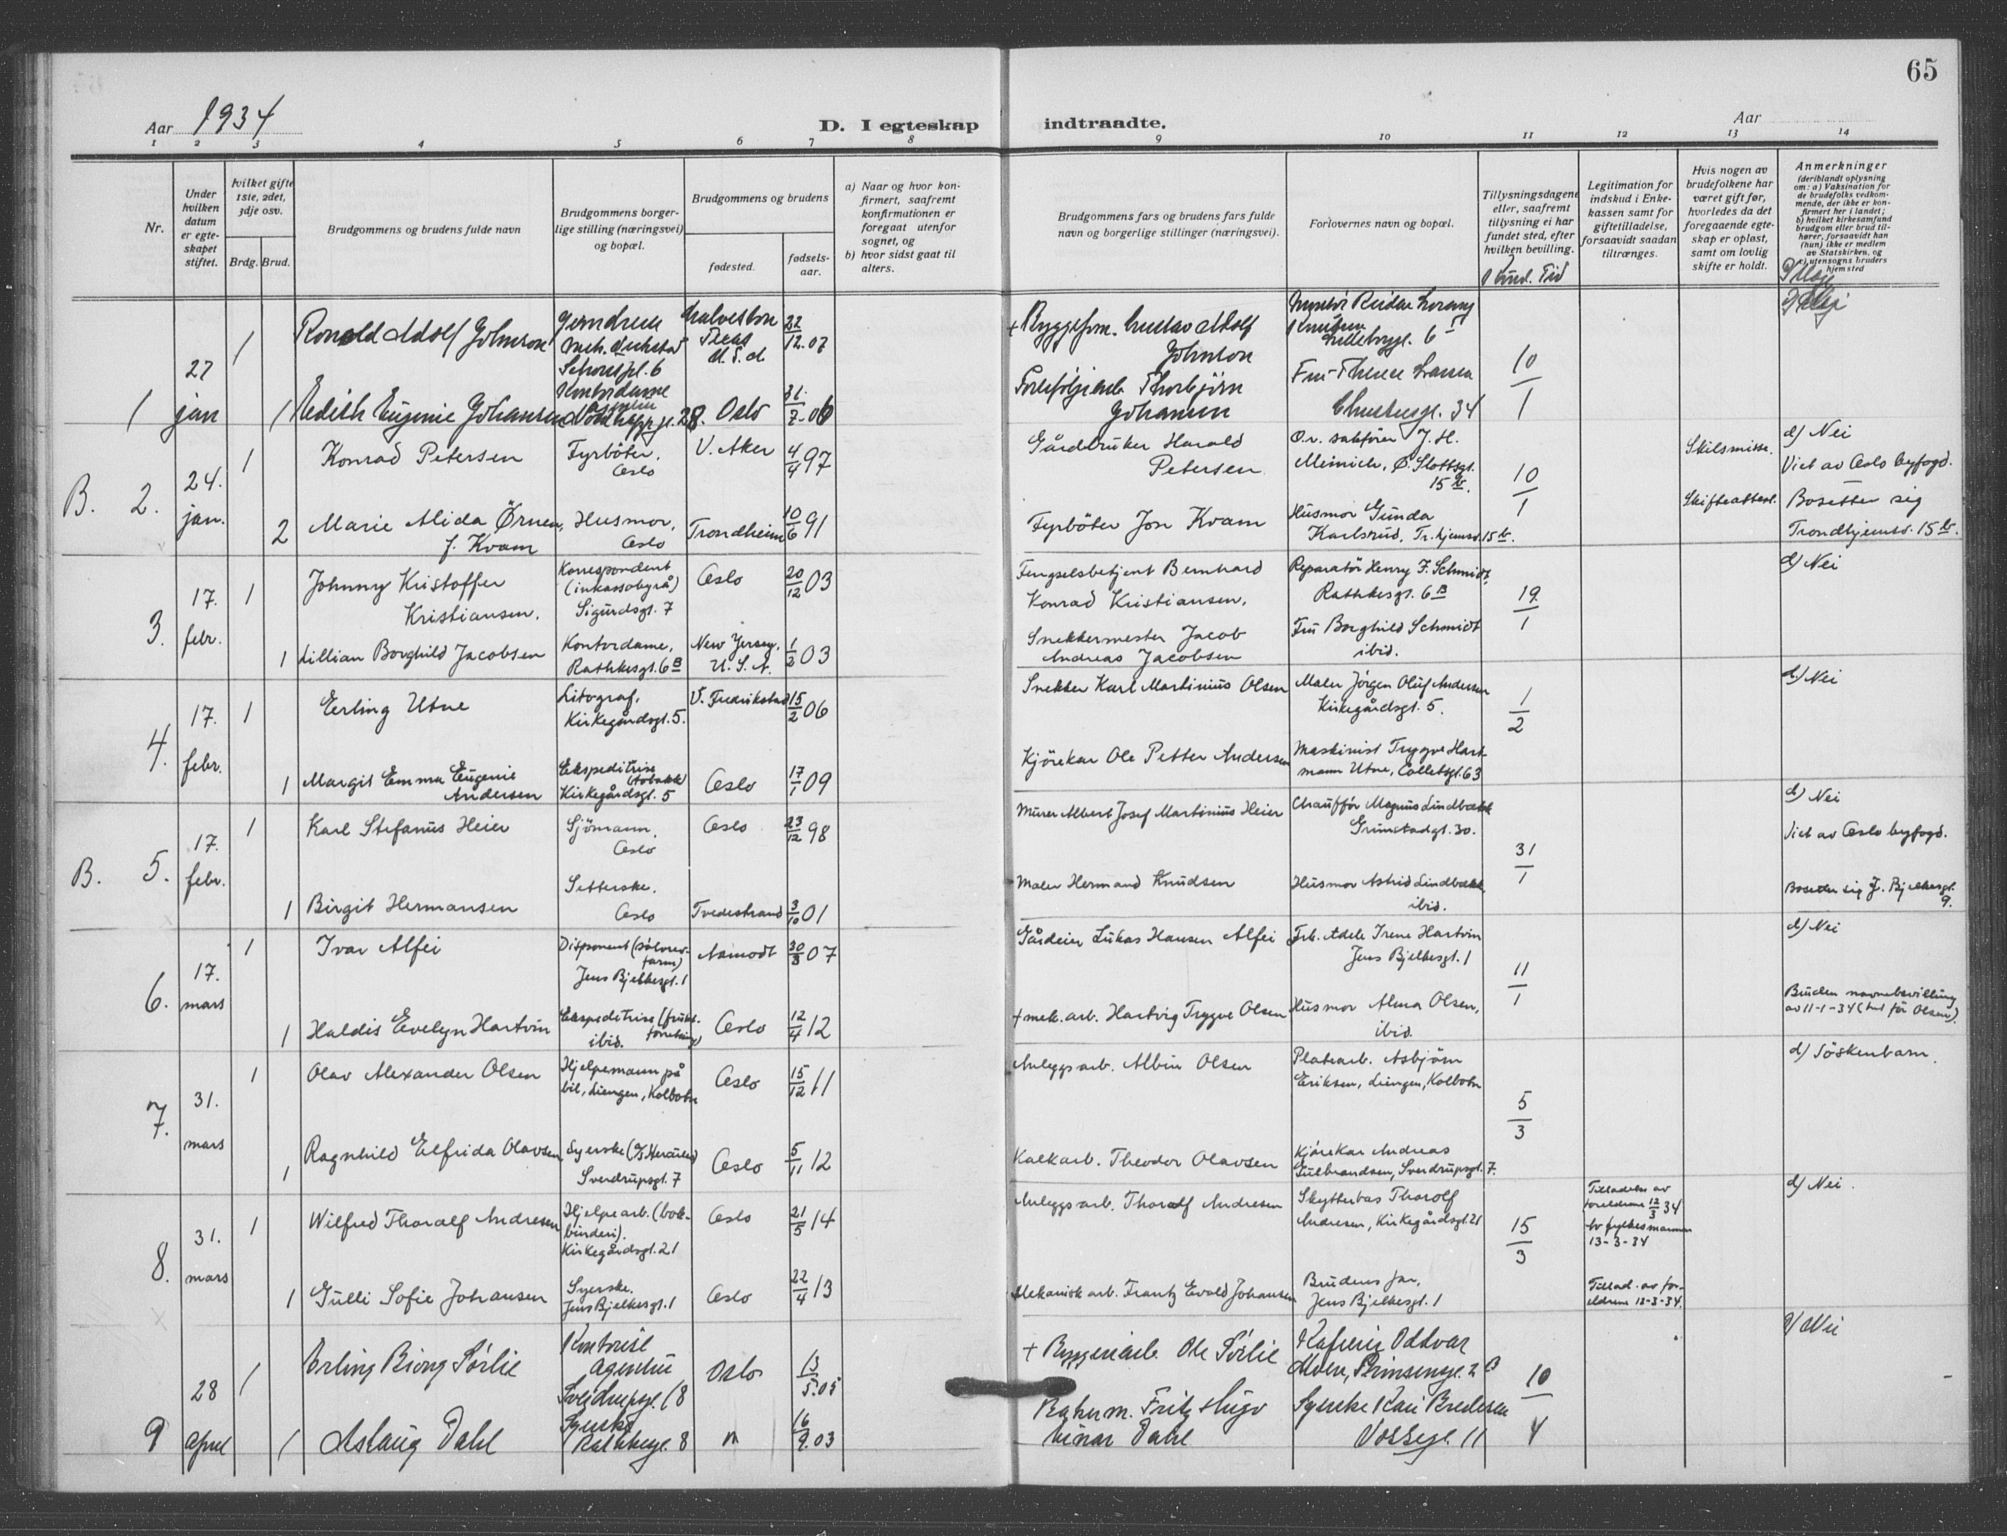 65
Aar 1934
D. I egteskap indtraadte.
Aar
1 2 3 4 5 6 7 8 9 10 11 12 13 14
Nr.
Under
hvilken
datum
er egte-
skapet
stiftet.
hvilket gifte
1ste, 2det,
3dje osv.
Brdg. Brud.
Brudgommens og brudens fulde navn
Brudgommens borger-
lige stilling (næringsvei)
og bopæl.
Brudgommens og brudens
fødested.
fødsels-
aar.
a) Naar og hvor kon-
firmert, saafremt
konfirmationen er
foregaat utenfor
sognet, og
b) hvor sidst gaat til
alters.
Brudgommens fars og brudens fars fulde
navn og borgerlige stillinger (næringsvei).
Forlovernes navn og bopæl.
Tillysningsdagene
eller, saafremt
tillysning ei har
fundet sted, efter
hvilken bevilling.
Legitimation for
indskud i Enke-
kassen samt for
giftetilladelse,
forsaavidt saadan
tiltrænges.
Hvis nogen av
brudefolkene har
været gift før,
hvorledes da det
foregaaende egte-
skap er opløst,
samt om lovlig
skifte er holdt.
Anmerkninger
(deriblandt oplysning
om: a) Vaksination for
de brudefolks vedkom-
mende, der ikke er kon-
firmert her i landet;
b) hvilket kirkesamfund
brudgom eller brud til-
hører, forsaavidt han
(hun) ikke er medlem
av Statskirken, og
c) utensogns bruders
hjemsted
1 27 jan 1 Ronald Adolf Johnson
mek. verksted
Texas
22/12.07
+ Byggefom. Gustav Adolf
Johnson
6
10/1
1 Edith Eugenie Johansen
Kontordame
28. Oslo 31/7.06
Thorbjørn
Johansen
Fru Therese Larsen
34
B. 2. 24. jan. 1 Konrad Petersen
Fyrbøter,
Oslo
V. Aker 4/4 97
Gårdbruker Harald
Petersen
O.r. sakfører J. H.
Meinich, Ø. Slottsgt.
15 b.
10/1
Skilsmisse.
d) Nei
Viet av Oslo byfogd.
2 Marie Alida Ørnen,
f. Kvam
Husmor,
Oslo
Trondheim 10/6 91
Fyrbøter Jon Kvam
Husmor Gunda
Karlsrud, Tr.hjemsv. 15 b.
Skifteattest.
Bosetter sig
Trondhjemsv. 15 b.
3. 17. febr. 1 Johnny Kristoffer
Kristiansen.
Korrespondent
(inkassobyrå)
Sigurdsgt. 7
Oslo 20/12 03
Fengselsbetjent Bernhard
Konrad Kristiansen.
Reparatør Henry F. Schmidt,
Rathkesgt. 6 B
19/1
d) Nei
1 Lillian Borghild Jacobsen
Kontordame,
Rathkesgt. 6 B
New Jersey,
U. S. A.
1/2 03
Snekkermester Jacob
Andreas Jacobsen
Fru Borghild Schmidt
ibid.
4. 17. febr. 1 Erling Utne
Litograf,
Kirkegårdsgt. 5.
V. Fredrikstad 15/2 06
Snekker Karl Martinius Olsen
Maler Jørgen Oluf Andersen
Kirkegårdsgt. 5.
1/2
d) Nei
1 Margit Emma Eugenie
Andersen
Ekspeditrise
(tobakk)
Kirkegårdsgt. 5
Oslo 17/1 09
Kjørekar Ole Petter Andersen
Maskinist Trygve Hart-
mann Utne, Colletsgt. 63
B. 5. 17. febr. 1 Karl Stefanus Heier
Sjømann,
Oslo
Oslo 23/12 98
Murer Albert Josef Martinius Heier
Chauffør Magnus Lindbækk
Grimstadgt. 30.
31/1
d) Nei
Viet av Oslo byfogd.
1 Birgit Hermansen
Setterske.
Oslo
Tvedestrand 3/10 01
Maler Hermand Knudsen
Husmor Astrid Lindbækk
ibid.
Bosetter sig J. Bjelkesgt.
9.
6. 17. mars 1 Ivar Alfei
Disponent (sølvrev-
farm)
Jens Bjelkesgt. 1
Aamodt 30/3 07
Gårdeier Lukas Hansen Alfei
Frk. Adele Irene Hartvin
Jens Bjelkesgt. 1
11/1
d) Nei
1 Haldis Evelyn Hartvin
Ekspeditrise (frukt-
forretning)
ibid.
Oslo 12/4 12
+ mek. arb. Hartvig Trygve Olsen
Husmor Alma Olsen,
ibid.
Bruden navnebevilling
av 11-1-34 (het før Olsen).
7. 31. mars 1 Olav Alexander Olsen
Hjelpemann på
bil, Liengen, Kolbotn
Oslo 15/12 11
Anleggsarb. Albin Olsen
Platearb. Asbjørn
Eriksen, Liengen, Kolbotn
5/3
d) Søskenbarn.
1 Ragnhild Elfrida Olavsen
Syerske (A/S Hercules)
Sverdrupsgt. 7
Oslo 5/11 12
Kalkarb. Theodor Olavsen
Kjørekar Andreas
Gulbrandsen, Sverdrupsgt. 7.
8. 31. mars 1 Wilfred Thoralf Andresen
Hjelpearb. (bok-
binderi).
Kirkegårdsgt. 21
Oslo 21/5 14
Anleggsarb. Thoralf Andresen
Skytterbas Thorolf
Andresen, Kirkegårdsgt. 21
15/3
Tilladelse av
foreldrene 12/3 34
Av fylkesmannen
13-3-34
d) Nei.
1 Gulli Sofie Johansen
Syerske.
Jens Bjelkesgt. 1
Oslo 22/4 13
Mekanisk arb. Frantz Evald Johansen
Brudens far,
Jens Bjelkesgt. 1
Tillad. av for-
eldrene 12-3-34.
9 28 april 1 Erling Biong Sørlie
Kontorist
agentur
Sverdrupsgt. 18
Oslo 13/5.05
+ Byggeriarb. Ole Sørlie
Oddvar
Prinsensgt. 2 B
10/4
d) Nei
1 Aslaug Dahl
Syerske
Rathkesgt. 8
" 16/9.03
Bakerm. Fritz Hugo
Einar Dahl
Syerske Kari Bredesen
Vossegt. 11